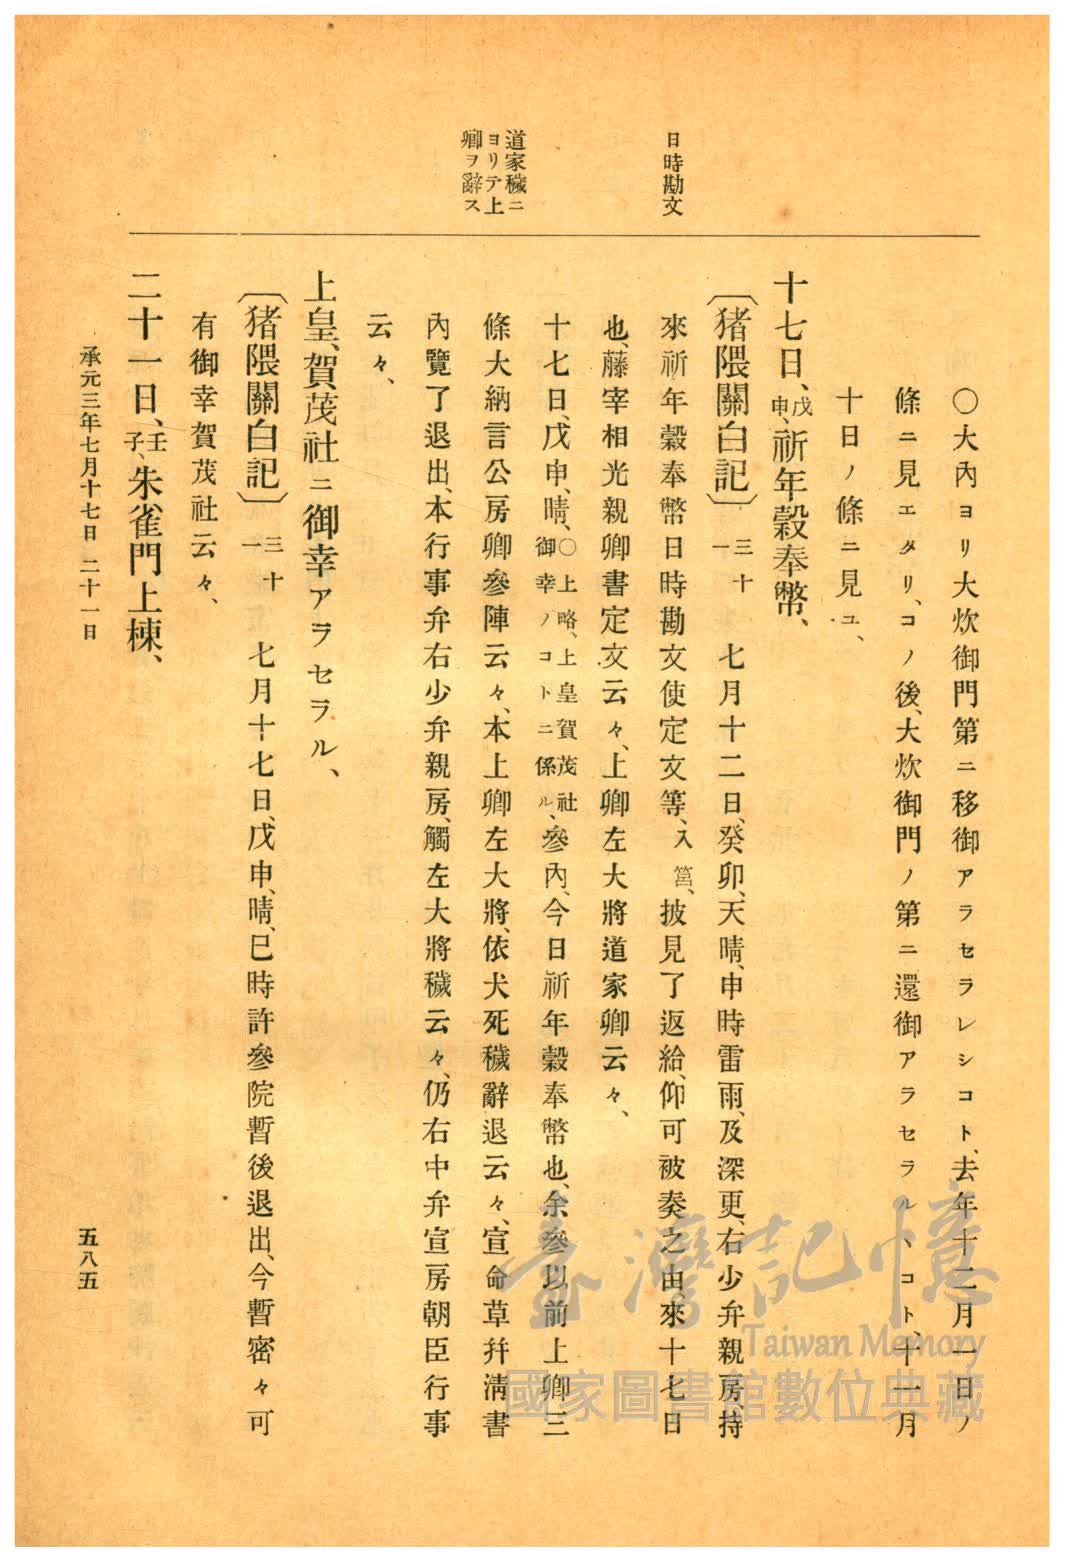 日時勘文
道家穢ニ
ヨリテ上
卿ヲ辭ス
〇大內ヨリ大炊御門第ニ移御アラセラレシコト、去年十二月一日ノ
條ニ見エタリ、コノ後、大炊御門ノ第ニ還御アラセラル、コト、十一月
十日ノ條ニ見ユ、
十七日、戊申、祈年穀奉幣、
〔猪隈關白記〕三十一 七月十二日、癸卯、天晴、申時雷雨、及深更、右少弁親房、持
來祈年穀奉幣日時勘文使定文等、入筥、披見了返給、仰可被奏之由、來十七日
也、藤宰相光親卿書定文云々、上卿左大將道家卿云々、
十七日、戊申、晴、〇上略、上皇賀茂社御幸ノコトニ係ル、參內、今日祈年穀奉幣也、余參以前上卿三
條大納言公房卿參陣云々、本上卿左大將、依犬死穢辭退云々、宣命草幷淸書
內覽了退出、本行事弁右少弁親房、觸左大將穢云々、仍右中弁宣房朝臣行事
云々、
上皇、賀茂社ニ御幸アラセラル、
〔猪隈關白記〕三十一 七月十七日、戊申、晴、巳時許參院、暫後退出、今暫密々可
有御幸賀茂社云々、
二十一日、壬子、朱雀門上棟、
承元三年七月十七日 二十一日
五八五
臺灣記憶
Taiwan Memory
國家圖書館數位典藏